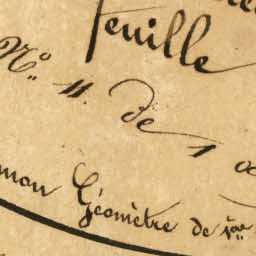 feuille
N° 11. de 1
mon Géomètre de 1ère